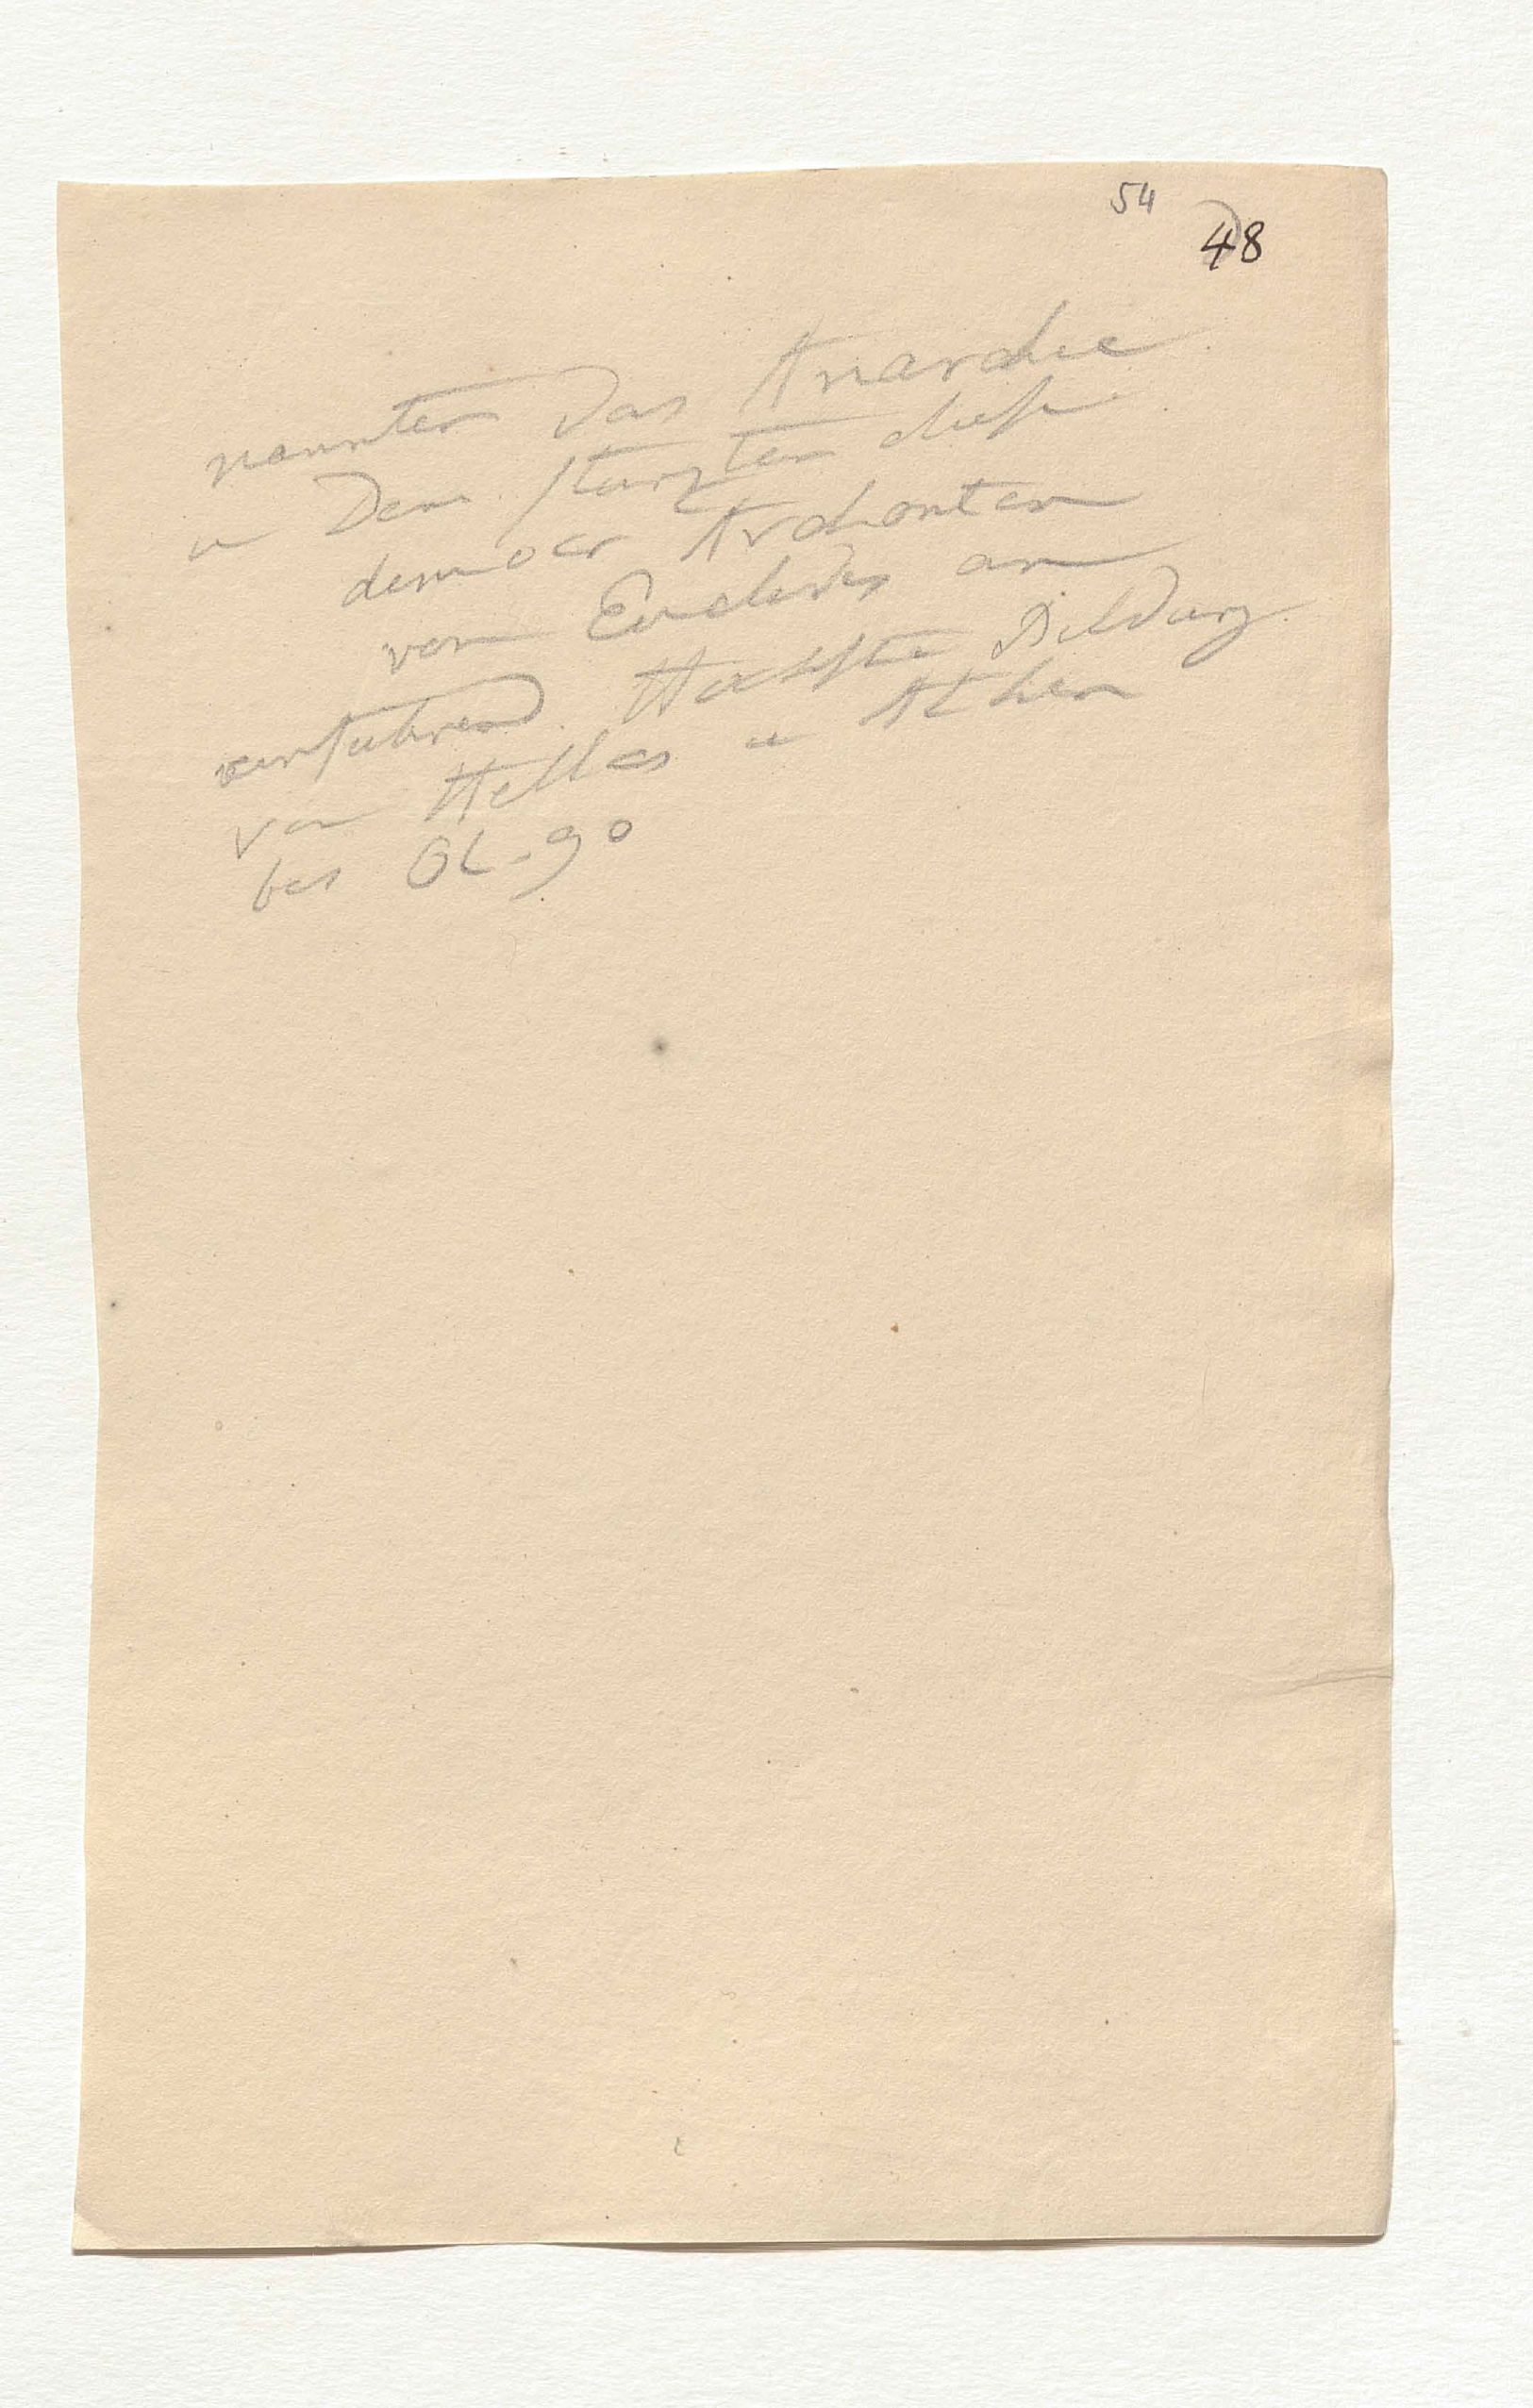 54
48
nannten das Anarchie
u Dem. sturzten diese
democr Archonten
von Euclides an
einfuhrend. Hochste Bildung
von Hellas u Athen
bis Ol. 90